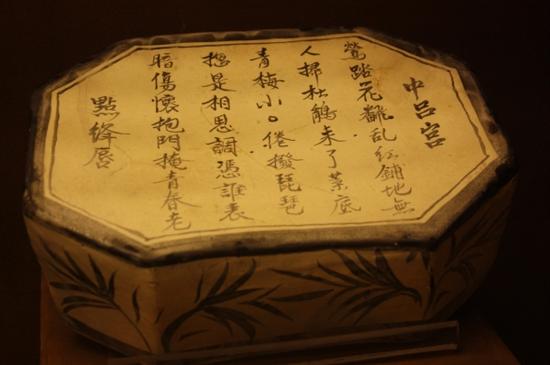 中呂宮
鶯踏花飜乱紅鋪地無
人掃杜鵑来了葉底
青梅小〇倦撥琵琶
揔是相思調憑誰表
暗傷懷抱門掩青春老
點絳唇